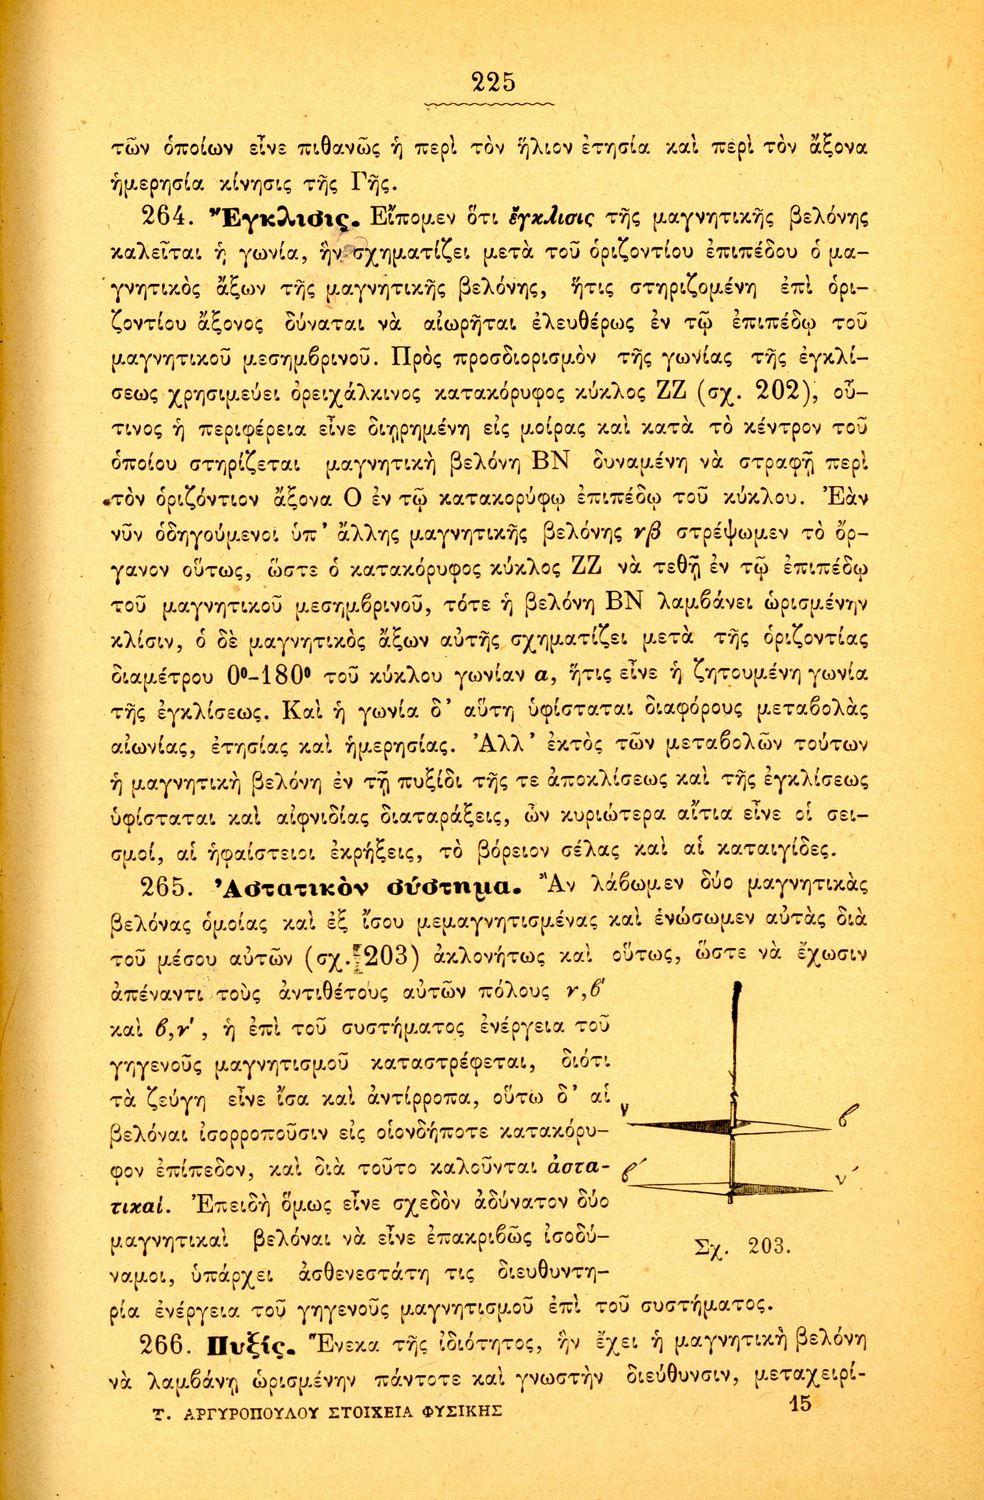 225
τῶν ὁποίων εἶνε πιθανῶς ἡ περὶ τὸν ἥλιον ἐτησία καὶ περὶ τὸν ἄξονα
ἡμερησία κίνησις τῆς Γῆς.
264. Ἔγκλισις. Εἴπομεν ὅτι ἔγκλισις τῆς μαγνητικῆς βελόνης
καλεῖται ἡ γωνία, ἣν σχηματίζει μετὰ τοῦ ὁριζοντίου ἐπιπέδου ὁ μα-
γνητικὸς ἄξων τῆς μαγνητικῆς βελόνης, ἥτις στηριζομένη ἐπὶ ὁρι-
ζοντίου ἄξονος δύναται νὰ αἰωρῆται ἐλευθέρως ἐν τῷ ἐπιπέδῳ τοῦ
μαγνητικοῦ μεσημβρινοῦ. Πρὸς προσδιορισμὸν τῆς γωνίας τῆς ἐγκλί-
σεως χρησιμεύει ὀρειχάλκινος κατακόρυφος κύκλος ΖΖ (σχ. 202), οὗ-
τινος ἡ περιφέρεια εἶνε διῃρημένη εἰς μοίρας καὶ κατὰ τὸ κέντρον τοῦ
ὁποίου στηρίζεται μαγνητικὴ βελόνη ΒΝ δυναμένη νὰ στραφῇ περὶ
τὸν ὁριζόντιον ἄξονα Ο ἐν τῷ κατακορύφῳ ἐπιπέδῳ τοῦ κύκλου. Ἐὰν
νῦν ὁδηγούμενοι ὑπ' ἄλλης μαγνητικῆς βελόνης νβ στρέψωμεν τὸ ὄρ-
γανον οὕτως, ὥστε ὁ κατακόρυφος κύκλος ΖΖ νὰ τεθῇ ἐν τῷ ἐπιπέδῳ
τοῦ μαγνητικοῦ μεσημβρινοῦ, τότε ἡ βελόνη ΒΝ λαμβάνει ὡρισμένην
κλίσιν, ὁ δὲ μαγνητικὸς ἄξων αὐτῆς σχηματίζει μετὰ τῆς ὁριζοντίας
διαμέτρου 0⁰-180⁰ τοῦ κύκλου γωνίαν α, ἥτις εἶνε ἡ ζητουμένη γωνία
τῆς ἐγκλίσεως. Καὶ ἡ γωνία δ' αὕτη ὑφίσταται διαφόρους μεταβολὰς
αἰωνίας, ἐτησίας καὶ ἡμερησίας. Ἀλλ' ἐκτὸς τῶν μεταβολῶν τούτων
ἡ μαγνητικὴ βελόνη ἐν τῇ πυξίδι τῆς τε ἀποκλίσεως καὶ τῆς ἐγκλίσεως
ὑφίσταται καὶ αἰφνιδίας διαταράξεις, ὧν κυριώτερα αἴτια εἶνε οἱ σει-
σμοί, αἱ ἡφαίστειοι ἐκρήξεις, τὸ βόρειον σέλας καὶ αἱ καταιγίδες.
265. Ἀστατικὸν σύστημα. Ἂν λάβωμεν δύο μαγνητικὰς
βελόνας ὁμοίας καὶ ἐξ ἴσου μεμαγνητισμένας καὶ ἑνώσωμεν αὐτὰς διὰ
τοῦ μέσου αὐτῶν (σχ. 203) ἀκλονήτως καὶ οὕτως, ὥστε νὰ ἔχωσιν
ἀπέναντι τοὺς ἀντιθέτους αὐτῶν πόλους ν,β'
καὶ β,ν', ἡ ἐπὶ τοῦ συστήματος ἐνέργεια τοῦ
γηγενοῦς μαγνητισμοῦ καταστρέφεται, διότι
τὰ ζεύγη εἶνε ἴσα καὶ ἀντίρροπα, οὕτω δ' αἱ
βελόναι ἰσορροποῦσιν εἰς οἱονδήποτε κατακόρυ-
φον ἐπίπεδον, καὶ διὰ τοῦτο καλοῦνται ἀστα-
τικαί. Ἐπειδὴ ὅμως εἶνε σχεδὸν ἀδύνατον δύο
μαγνητικαὶ βελόναι νὰ εἶνε ἐπακριβῶς ἰσοδύ-
ναμοι, ὑπάρχει ἀσθενεστάτη τις διευθυντη-
ρία ἐνέργεια τοῦ γηγενοῦς μαγνητισμοῦ ἐπὶ τοῦ συστήματος.
ν
β
β'
ν'
Σχ. 203.
266. Πυξίς. Ἕνεκα τῆς ἰδιότητος, ἣν ἔχει ἡ μαγνητικὴ βελόνη
νὰ λαμβάνῃ ὡρισμένην πάντοτε καὶ γνωστὴν διεύθυνσιν, μεταχειρί-
Τ. ΑΡΓΥΡΟΠΟΥΛΟΥ ΣΤΟΙΧΕΙΑ ΦΥΣΙΚΗΣ
15